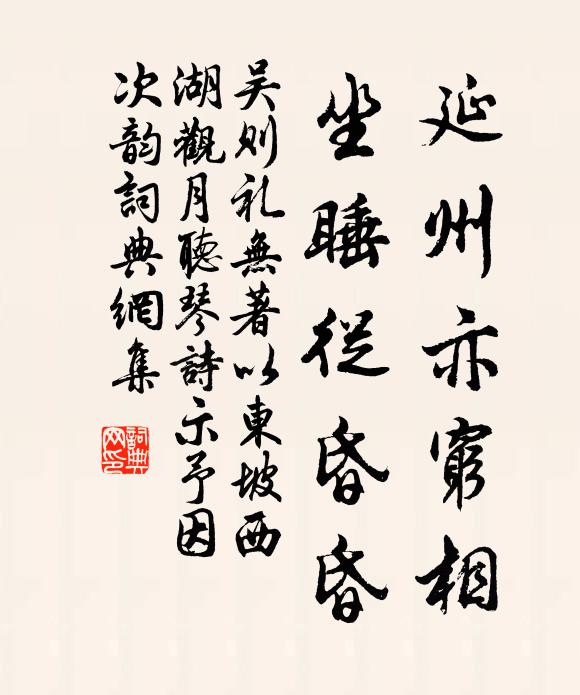 延州亦窮相
坐睡從昏昏
吴则礼無著以東坡西
湖觀月聽琴詩示予因
次韵詞典網集
詞典
网印